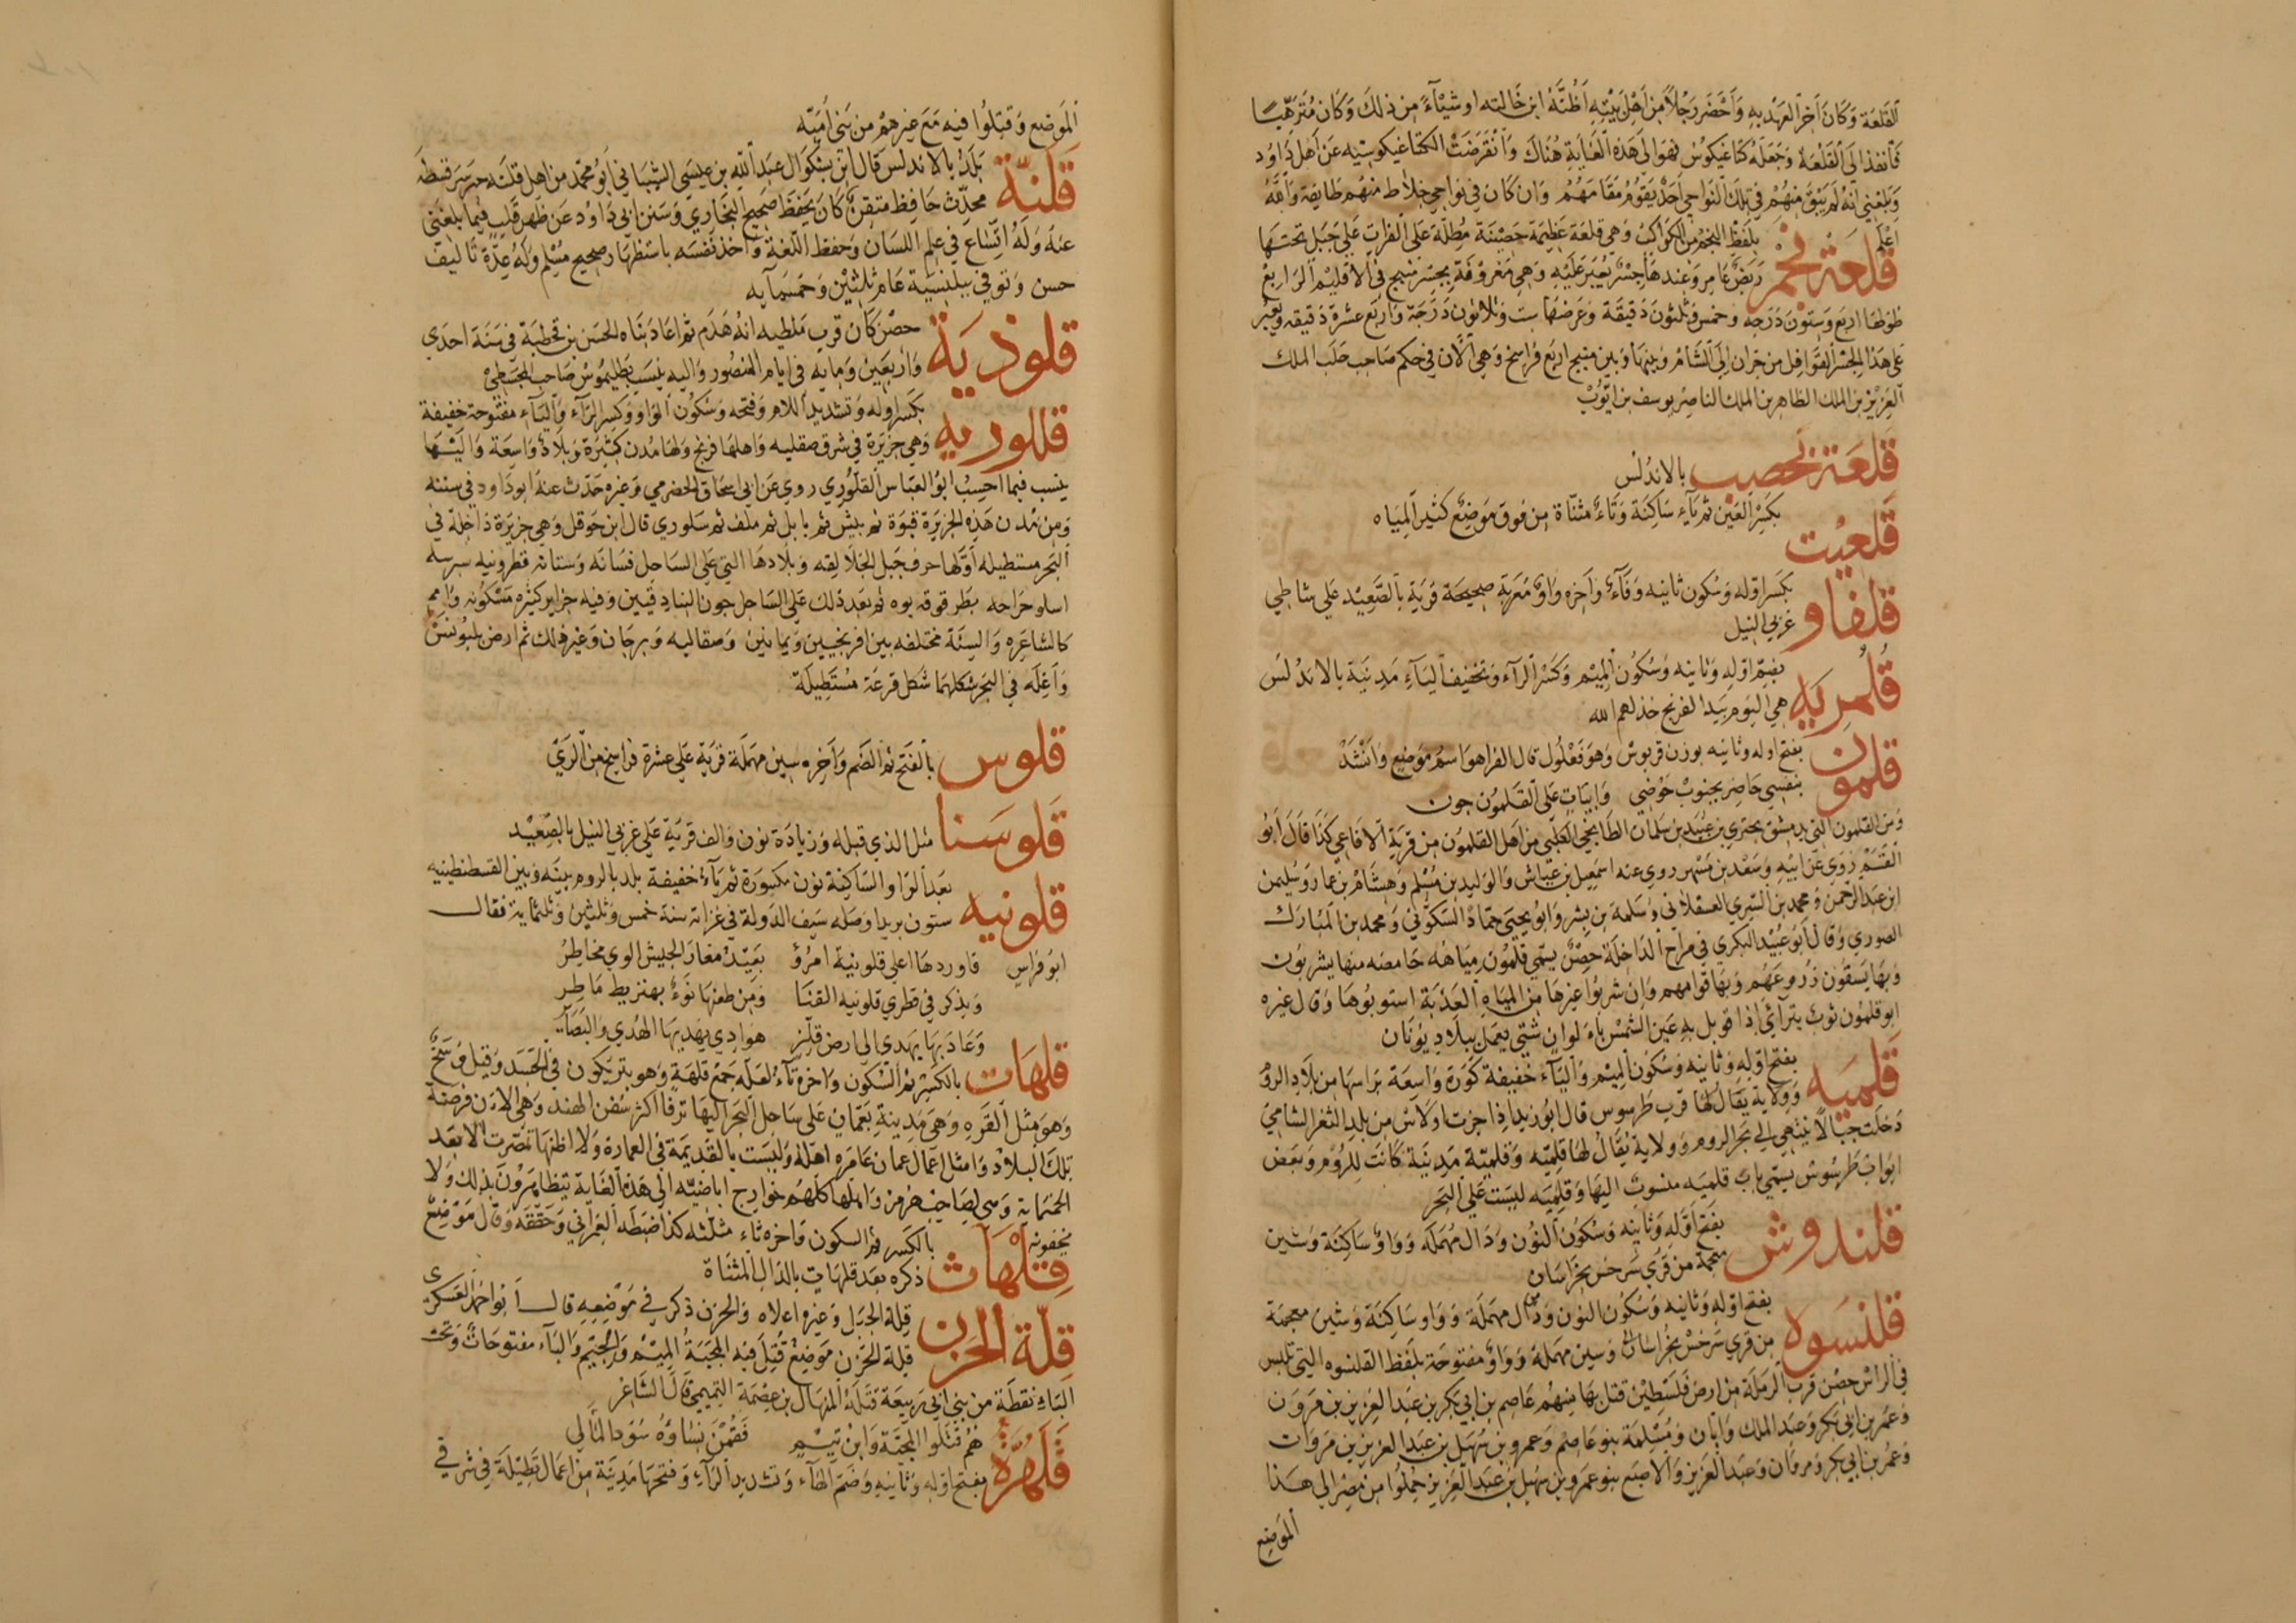 القلعة وكان آخر العهد به وأحضر رجلا من أهل بيته أظنه ابن خالته او شيئا من ذلك وكان مترهبا
فأنفذ الى القلعة وجعله كتاغيكوس فهو الى هذه الغاية هناك وانقرضت الكتاغيكوسيه عن اهل داود
وبلغني انه لم يبق منهم في تلك النواحي احد يقوم مقامهم وان كان في نواحي خلاط منهم طايفة والله
اعلم
قلعة نجم بلفظ النجم من الكواكب وهي قلعة عظيمة حصينة مطلة على الفرات على جبل تحتها
ربض عامر وعندها جسر يعبر عليه وهي معروفة بجسر منبج في الاقليم الرابع
طولها اربع وستون درجه وخمس وثلثون دقيقة وعرضها ست وثلاثون درجة واربع عشرة دقيقه ويعبر
على هذا الجسر القوافل من حران الى الشام وبينها وبين منبج اربع فراسخ وهي الآن في حكم صاحب حلب الملك
العزيز بن الملك الظاهر بن الملك الناصر يوسف بن ايوب
قلعة يحصب بالاندلس
قلعيت بكسر العين ثم ياء ساكنة وتاء مثناة من فوق موضع كثير المياه
قلفاو بكسر اوله وسكون ثانيه وفاء وآخره واو معربة صحيحة قرية بالصعيد على شاطي
غربي النيل
قلمريه بضم اوله وثانيه وسكون الميم وكسر الراء وتخفيف الياء مدينة بالاندلس
هي اليوم بيد الفرنج خذلهم الله
قلمون بفتح اوله وثانيه بوزن قربوس وهو فعلول قال الفرا هو اسم موضع وانشد
بنفسي حاضر بجنوب حوضي وابيات على القلمون جون
ومن القلمون التي بدمشق بحتري بن عبيد بن سلمان الطابخي الكلبي من اهل القلمون من قرية الافاعي كذا قال ابو
القسم روي عن ابيه وسعد بن مسهر روي عنه اسمعيل بن عياش والوليد بن مسلم وهشام بن عمار وسليمن
ابن عبد الرحمن ومحمد بن السري العسقلاني وسلمة بن بشر وابو يحيى حماد السكوني ومحمد بن المبارك
الصوري وقال ابو عبيد البكري في مراح الداخلة حصن يسمي قلمون مياهه حامضه منها يشربون
وبها يسقون زروعهم وبها قوامهم وان شربوا غيرها من المياه العذبة استوبوها وقال غيره
ابو قلمون ثوب يتراءى اذا قوبل به عين الشمس بالوان شتى يعمل ببلاد يونان
قلميه بفتح اوله وثانيه وسكون الميم والياء خفيفة كورة واسعة براسها من بلاد الروم
وولاية يقال لها قرب طرسوس قال ابو زيد اذا جزت اولاش من بلد الثغر الشامي
دخلت جبالا تنتهي الى بحر الروم وولاية يقال لها قلميه وقلمية مدينة كانت للروم وبعض
ابواب طرسوس يسمي باب قلميه منسوب اليها وقلميه ليست على البحر
قلندوش بفتح اوله وثانيه وسكون النون ودال مهملة وواو ساكنة وشين
معجمة من قري سرخس بخراسان
قلنسوه بفتح اوله وثانيه وسكون النون ودال مهملة وواو ساكنة وشين معجمة
من قري سرخس بخراسان وسين مهملة وواو مفتوحة بلفظ القلنسوه التي تلبس
في الراس حصن قرب الرملة من ارض فلسطين قتل بها منهم عاصم بن ابي بكر بن عبد العزيز بن مروان
وعمر بن ابي بكر وعبد الملك وابان ومسلمة بنو عاصم وعمرو بن سهيل بن عبد العزيز بن مروان
وعمر بن ابي بكر ومروان وعبد العزيز والاصبع بنو عمرو بن سهيل بن عبد العزيز حملوا من مصر الى هذا
الموضع
الموضع وقتلوا فيه مع غيرهم من بني أميه
قلنة بلد بالاندلس قال ابن بشكوال عبد الله بن عيسى الشيباني ابو محمد من اهل قلنه حيز سرقسطه
محدث حافظ متقن كان يحفظ صحيح البخاري وسنن ابي داود عن ظهر قلب فيما بلغني
عنه وله اتساع في علم اللسان وحفظ اللغة واخذ نفسه باستظهار صحيح مسلم وله عدة تاليف
حسن وتوفي ببلنسية عام ثلثين وخمسمايه
قلوذية حصن كان قرب ملطيه انه هدم ثم اعاد بناه الحسن بن قحطبة في سنة احدي
واربعين ومايه في ايام المنصور واليه ينسب بطليموس صاحب المجسطي
قللوريه بكسر اوله وتشديد اللام وفتحه وسكون الواو وكسر الراء والياء مفتوحة خفيفة
وهي جزيرة في شرق صقليه واهلها فرنج ولها مدن كثيرة وبلاد واسعة واليها
ينسب فيما احسب ابو العباس القلوري روي عن ابي اسحاق الحضرمي وغيره حدث عنه ابو داود في سننه
ومن مدن هذه الجزيرة قبوة ثم بيش ثم بابل ثم ملف ثم سلوري قال ابن حوقل وهي جزيرة داخلة في
البحر مستطيله اولها حرف جبل الجلالقه وبلادها التي على الساحل قسانه وستانه قطرونيه سبرينه
اسلو جراجه بطرقوقه بوه ثم بعد ذلك على الساحل جون البنادقيين وفيه جزاير كثيره مسكونه وامم
كالشاعره والسنة مختلفه بين افرنجيين ويمانين وصقالبه وبرجان وغير ذلك ثم ارض بلبونس
واغله في البحر شكلها شكل قرعة مستطيلة
قلوس بالفتح ثم الضم وآخره سين مهملة قرية على عشرة فراسخ من الري
قلوسنا مثل الذي قبله وزيادة نون والف قرية على غربي النيل بالصعيد
قلونيه بعد الواو الساكنة نون مكسورة ثم ياء خفيفة بلد بالروم بينه وبين القسطنطينيه
ستون بريدا وصله سيف الدولة في غزاته سنة خمس وثلثين وثلثماية فقال
ابو فراس فاوردها اعلي قلونية امرؤ بعيد مغار الجيش الوي مخاطر
ويذكر في قطري قلونيه القنا ومن طعنها نوء بهنزيط ماطر
وعاد بها يهدي الى ارض قلز هوادي يهديها الهدي والبصاير
قلهات بالكسر ثم السكون واخره تاء لعله جمع قلهة وهو بثر يكون في الجسد وقيل وسخ
وهو مثل القره وهي مدينة بعمان على ساحل البحر اليها ترفأ اكثر سفن الهند وهي الان فرضة
تلك البلاد وامثل اعمال عمان عامره آهلة وليست بالقديمة في العمارة ولا اظنها تمصرت الا بعد
الخمسماية وهي لصاحب هرمز واهلها كلهم خوارج اباضيه الى هذه الغاية يتظاهرون بذلك ولا
يخفونه
قلهاث بالكسر ثم السكون واخره ثاء مثلثه كذا ضبطه العمراني وحققه وقال موضع
ذكره بعد قلهات بالدال المثناة
قلة الحزن قلة الجبل وغيره اعلاه والحزن ذكر في موضعه قال ابو احمد العسكري
قلة الحزن موضع قتل فيه المجبة الميم والجيم والباء مفتوحات وتحت
الباء نقطة من بني ابي ربيعة قتله المنهال بن عصمة التميمي قال الشاعر
هم قتلوا المجبة وابن تيم فقمن نساوه سود المآلي
قلهرة بفتح اوله وثانيه وضم الهاء وتشديد الراء وفتحها مدينة من اعمال تطيلة في شرقي